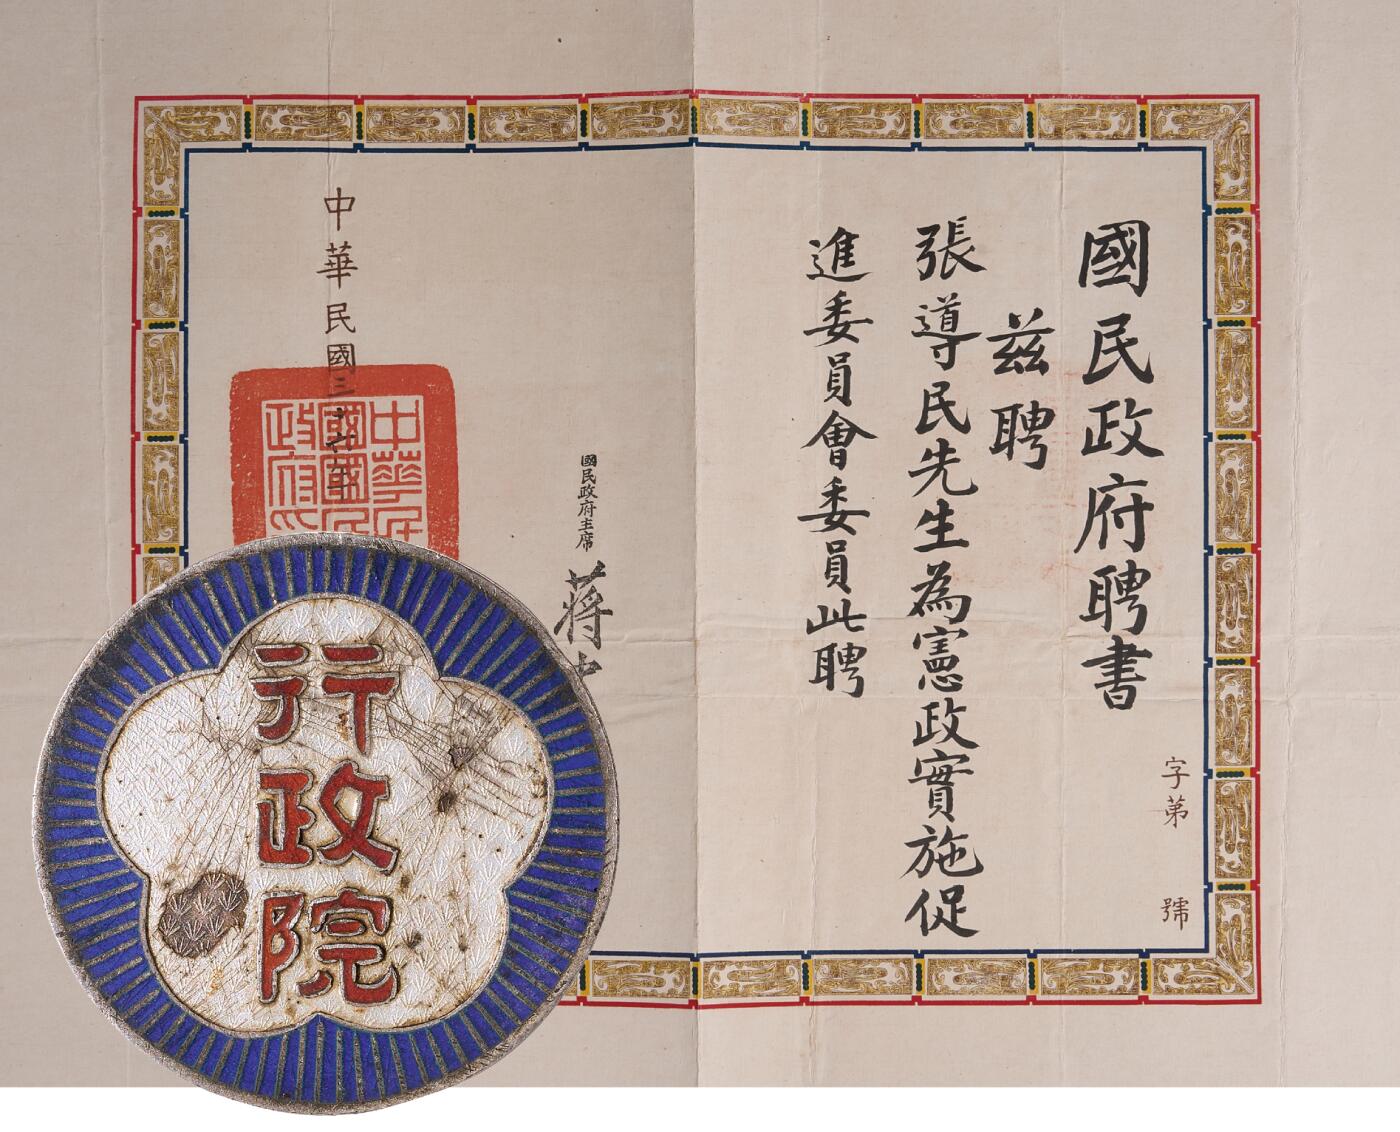 國民政府聘書
字第 號
茲聘
張導民先生為憲政實施促
進委員會委員此聘
國民政府主席
蔣中
中華民國三十六年
行政院